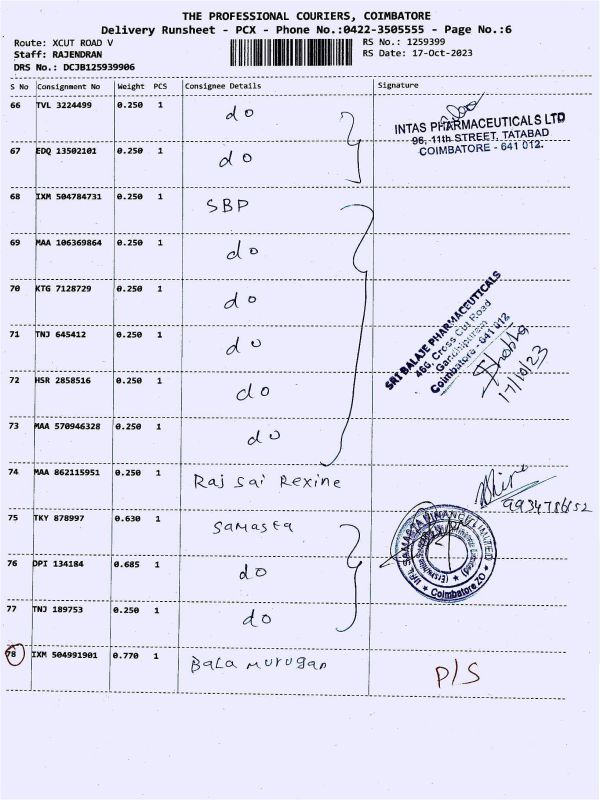 THE PROFESSIONAL COURIERS, COIMBATORE
Delivery Runsheet - PCX - Phone No.:0422-3505555 - Page No.:6
Route: XCUT ROAD V
RS No.: 1259399
Staff: RAJENDRAN
RS Date: 17-Oct-2023
DRS No.: DCJB125939906
S No Consignment No Weight PCS Consignee Details Signature
66 TVL 3224499 0.250 1 do
INTAS PHARMACEUTICALS LTD
96, 11th STREET, TATABAD
COIMBATORE - 641 012.
67 EDQ 13502101 0.250 1 do
68 IXM 504784731 0.250 1 SBP
69 MAA 106369864 0.250 1 do
70 KTG 7128729 0.250 1 do
SRI BALAJE PHARMACEUTICALS
466, Cross Cut Road
Gandhipuram
Coimbatore - 641 012
17/10/23
71 TNJ 645412 0.250 1 do
72 HSR 2858516 0.250 1 do
73 MAA 570946328 0.250 1 do
74 MAA 862115951 0.250 1 Raj Sai Rexine
75 TKY 878997 0.630 1 Samasta
SAMASTA FINANCE LIMITED
Coimbatore ZO
76 DPI 134184 0.685 1 do
77 TNJ 189753 0.250 1 do
78 IXM 504991901 0.770 1 Bala Murugan P/S